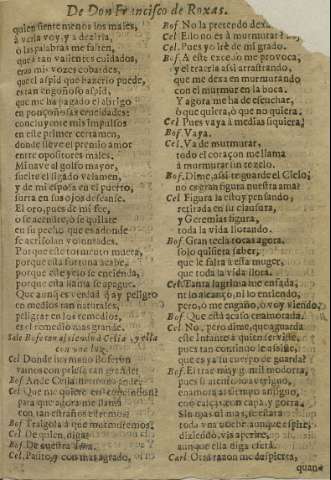 De Don Francisco de Roxas.
quien siente menos los males,
à verla voy, y a dezirla,
o las palabras me falten,
que à tan valientes cuidados,
eran mis vozes cobardes,
que el aspid que hazerlo puede,
están engañoso aspid,
que me ha pagado el abrigo
en ponçoñosas
concluyeme mis impulsos
en este primer certamen,
donde lleve el premio amor
entre opositores males.
Mi nave el golfo mayor,
suelte el ligado velamen,
y de mi esposa en el puerto,
surta en sus ojos descanse.
El oro, pues de mi fee,
o se acendre, o se quilate
en su pecho que es adonde
se acrisolan voluntades.
Porque este tormento muera,
porque esta fortuna acabe,
porque este yelo se encienda,
porque esta llama se apague.
Que aunq̃ es verdad q̃ ay peligro
en medios tan naturales,
peligrar en los remedios,
es el remedio mas grande.
Sale Bofetan assiendo à Celia, y ella
con una luz.
Cel. Donde hermano Bofetón
vamos con priesa tan grande?
Bof. Ande Celia hermano ande.
Cel. Que me quiere
para que agora me llama
con tan estraños estremos?
Bof. Traigola à que murmuremos.
Cel. De quien, diga?
Bof. De nuestra ama.
Cel. Passito, y con mas agrado,
Bof. No la pretendo dexar
Cel. Ello no es à murmurar?
Cel. Pues yo irè de mi grado.
Bof. A este exceso me provoca,
y el traerla assi arrastrando,
que me dexa en murmurando
con el murmur en la boca.
Y agora me ha de escuchar,
ò que quiera, ò que no quiera.
Cel. Pues vaya à medias siquiera,
Bof. Vaya.
Cel. Va de murmurar,
todo el coraçon me llama
à murmurar sin rezelo.
Bof. Dime, assi te guarde el Cielo,
no es gran figura nuestra ama?
Cel. Figura la estoy pensando,
retirada en su clausura,
y Geremias figura,
toda la vida llorando.
Bof. Gran tecla tocas agora,
solo quisiera saber,
que le falta à esta muger,
que toda la vida llora.
Cel. Tanta lagrima me enfada,
ni lo alcanço, ni lo entiendo,
pero, o me engaño, ò voy siendo,
Bof. Que està acaso enamorada.
Cel. No, pero dime, que aguarda
este Infante à quien serviste,
pues tan continuo le assiste,
que es ya su cuerpo de guarda?
Bof. El trae muy g. mil modorra,
pues si atento lo averiguo,
enamora al tiempo antiguo,
con calças, con capa, y gorra,
Sin mas ni mas, se estara
toda una noche aunque espire,
diziendo, vis aperire,
aunque ella diga efetà.
Carl. Otra razon me despierta,
quan-